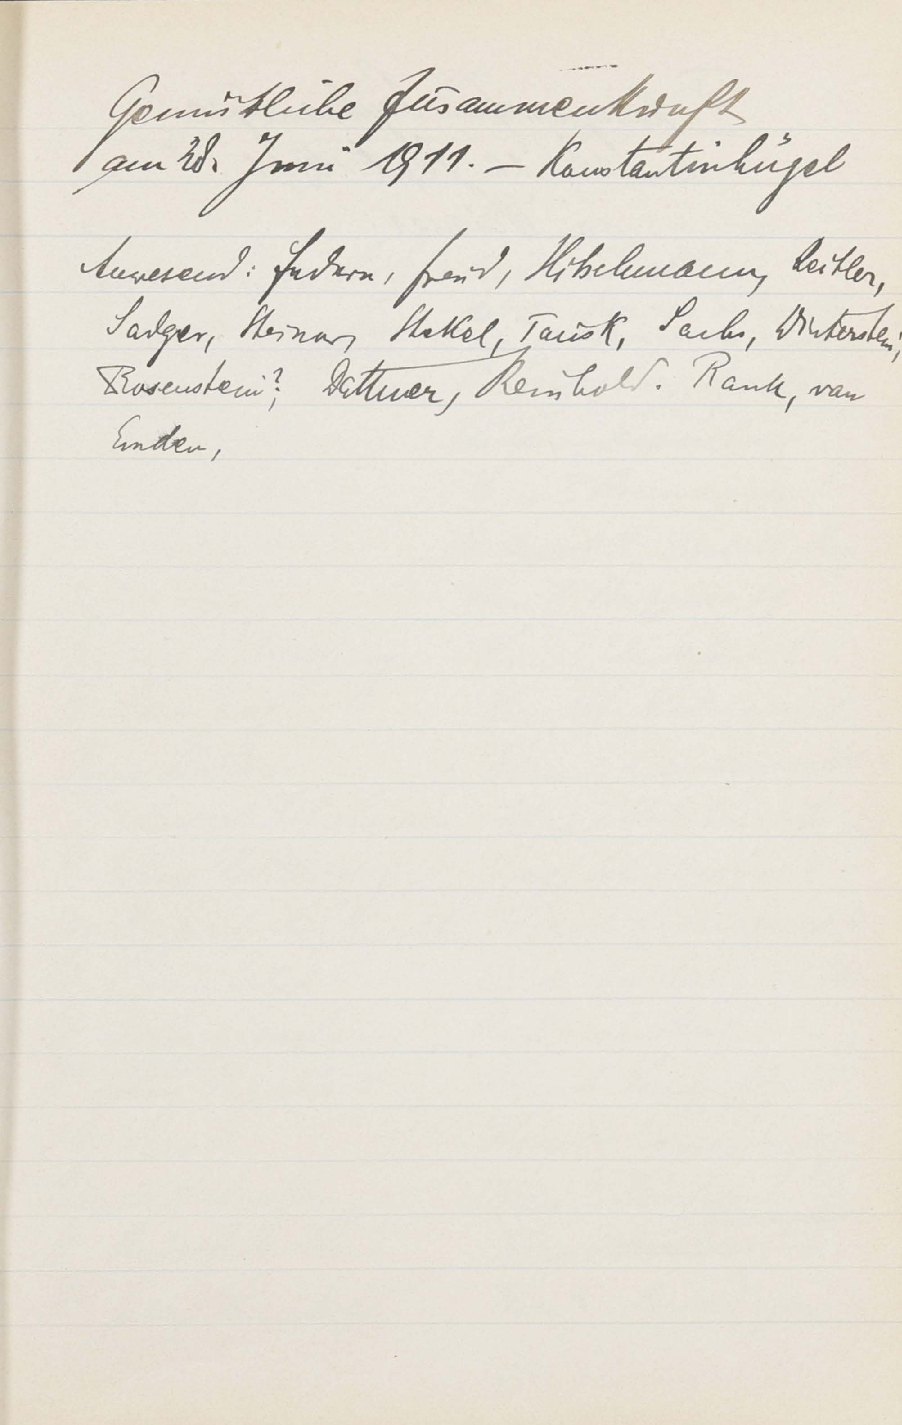 Gemütliche Zusammenkunft
am 28. Juni 1911. — Konstantinhügel
Anwesend: Federn, Freud, Hitschmann, Reitler,
Sadger, Steiner, Stekel, Tausk, Sachs, Winterstein,
Rosenstein?, Dattner, Reinhold. Rank, van
Emden,